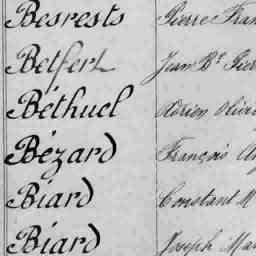 Besrests Pierre Fran
Betfert Jean Bt Pier
Béthuel Adrien Olivi
Bézard François Au
Biard Constant M
Biard Joseph Mar